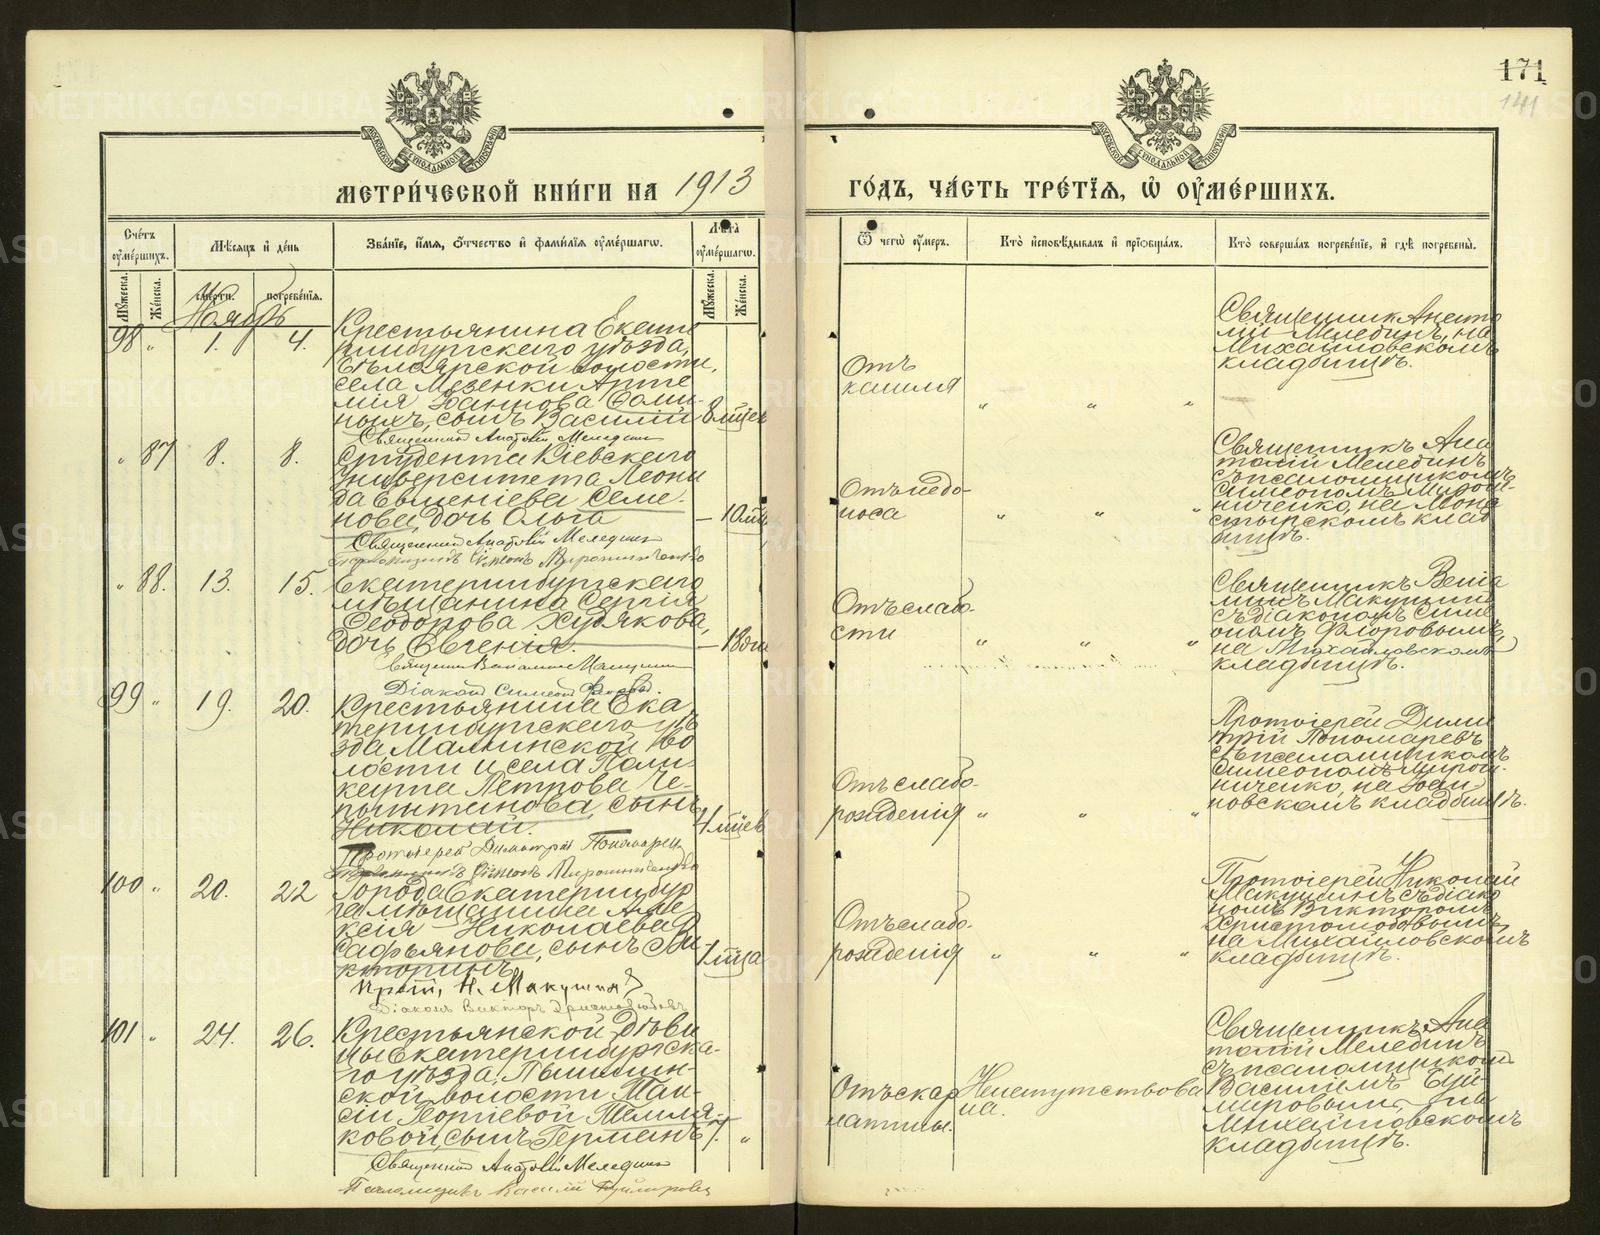 171
141
МЕТРИ́ЧЕСКОЙ КНИ́ГИ НА 1913
ГО́ДЪ, ЧА́СТЬ ТРЕ́ТІѦ, Ѡ҆ ОУ҆МЕ́РШИХЪ.
Сче́тъ оу҆ме́ршихъ.
Мѣ́сѧцъ и҆ де́нь
Зва́нїе, и҆́мѧ, ѻ҆́тчество и҆ фами́лїѧ оу҆ме́ршагѡ.
Лѣ́та оу҆ме́ршагѡ.
Ѿ чегѡ̀ оу҆́меръ.
Кто̀ и҆сповѣ́дывалъ и҆ прїѡбща́лъ.
Кто̀ соверша́лъ погребе́нїе, и҆ гдѣ̀ погребены̀.
Мꙋ́жеска.
Же́нска.
сме́рти.
погребе́нїѧ.
Мꙋ́жеска.
Же́нска.
Ноябрь
98 " 1. 4.
Крестьянина Екате
ринбургскаго уѣзда,
Бѣлоярской волости,
села Мезенки Арте
мія Іоаннова Ѳоми-
ныхъ, сынъ Василій 8 мцев
Священникъ Анатолій Мелединъ
Отъ
кашля
" " "
Священникъ Анато
лій Мелединъ, на
Михайловскомъ
кладбищѣ.
" 87 8. 8.
Студента Кіевскаго
Университета Леони
да Евменіева Семе-
нова, дочь Ольга — 10 мц.
Священникъ Анатолій Меледин
Псаломщикъ Симеонъ Мирошниченко
Отъ недо-
носа
" " "
Священникъ Ана
толій Мелединъ
съ псаломщикомъ
Симеономъ Мирош-
ниченко, на Мона
стырскомъ клад
бищѣ.
" 88. 13. 15.
Екатеринбургскаго
мѣщанина Сергія
Ѳеодорова Худякова,
дочь Евгенія. — 18 дн
Священникъ Веніаминъ Макушинъ
Діаконъ Симеонъ Флоровъ.
Отъ слабо-
сти
" " "
Священникъ Веніа
минъ Макушинъ
съ діакономъ Симе
ономъ Флоровымъ,
на Михайловскомъ
кладбищѣ.
99 " 19. 20.
Крестьянина Ека
теринбургскаго уѣ
зда Маминской во
лости и села Поли-
карпа Петрова Че-
пыштанова, сынъ
Николай. 4 мцев
Протоіерей Димитрій Пономарев
Псаломщикъ Симеонъ Мирошниченко
Отъ слабо-
рожденія
" " "
Протоіерей Дими
трій Пономаревъ
съ псаломщикомъ
Симеономъ Мирош-
ниченко, на Іоан
новскомъ кладбищѣ.
100 " 20. 22
Города Екатеринбур
га мѣщанина Але
ксія Николаева
Сафьянова, сынъ Ви-
кторинъ 1 мца
Прот. Н. Макушинъ
Діаконъ Викторъ Христолюбовъ
Отъ слабо-
рожденія
" " "
Протоіерей Николай
Макушинъ съ діако
номъ Викторомъ
Христолюбовымъ,
на Михайловскомъ
кладбищѣ.
101 " 24. 26.
Крестьянской дѣви
цы Екатеринбургска-
го уѣзда, Пышмин-
ской волости Таи-
сіи Георгіевой Темля-
ковой, сынъ Германъ 7. "
Священникъ Анатолій Меледин
Псаломщикъ Василій Буймировъ
Отъ скар
латины.
Не напутствова
на.
Священникъ Ана
толій Мелединъ
съ псаломщикомъ
Василіемъ Буй-
мировымъ, на
Михайловскомъ
кладбищѣ.